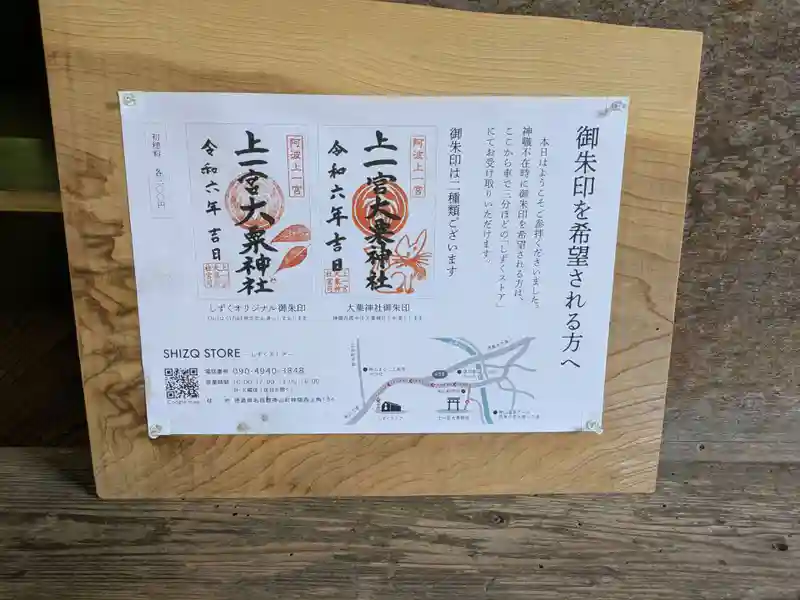 御朱印を希望される方へ
本日はようこそご参拝くださいました。
神職不在時に御朱印を希望される方は、
ここから車で三分ほどの「しずくストア」
にてお受け取りいただけます。
御朱印は二種類ございます
阿波上一宮
上一宮大粟神社
令和六年吉日
大粟神社御朱印
阿波上一宮
上一宮大粟神社
令和六年吉日
しずくオリジナル御朱印
初穂料
SHIZQ STORE しずくストアー
電話番号 090-4940-3848
営業時間
住所
Google map
しずくストア
上一宮大粟神社